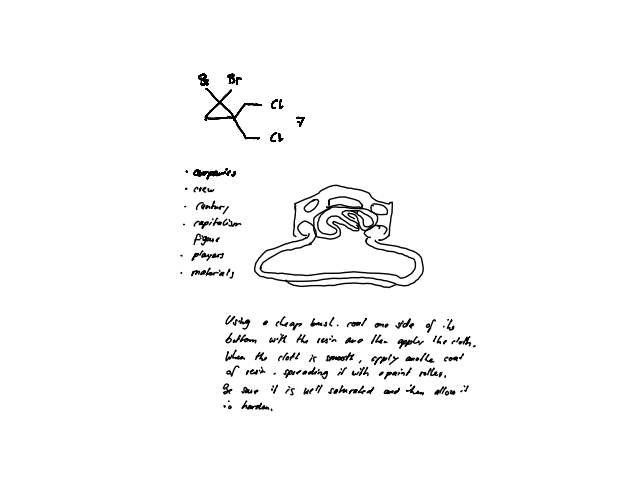 Br Br
Cl
7
Cl
• companies
• crew
• century
• capitalism
figure
• players
• materials
Using a cheap brush. coat one side of the
bottom with the resin and then apply the cloth.
When the cloth is smooth, apply another coat
of resin. spreading it with a paint roller.
Be sure it is well saturated and then allow it
to harden.